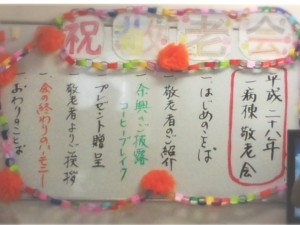 祝敬老会
平成二十八年
一病棟 敬老会
一はじめのことば
一敬老者のご紹介
一余興のご披露
コーヒーブレイク
プレゼント贈呈
敬老者よりご挨拶
会の終わりのハーモニー
おわりのことば